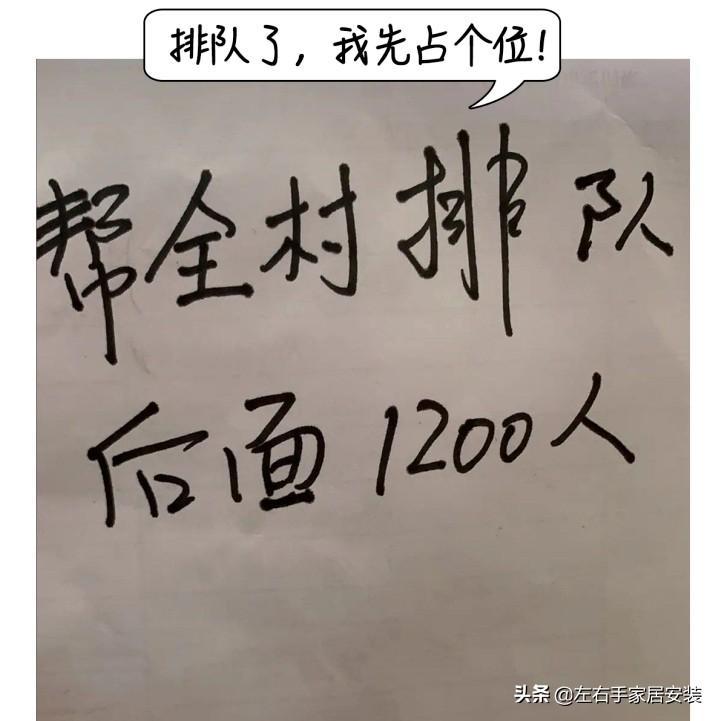 排队了，我先占个位！
帮全村排队
后面1200人
头条 @左右手家居安装